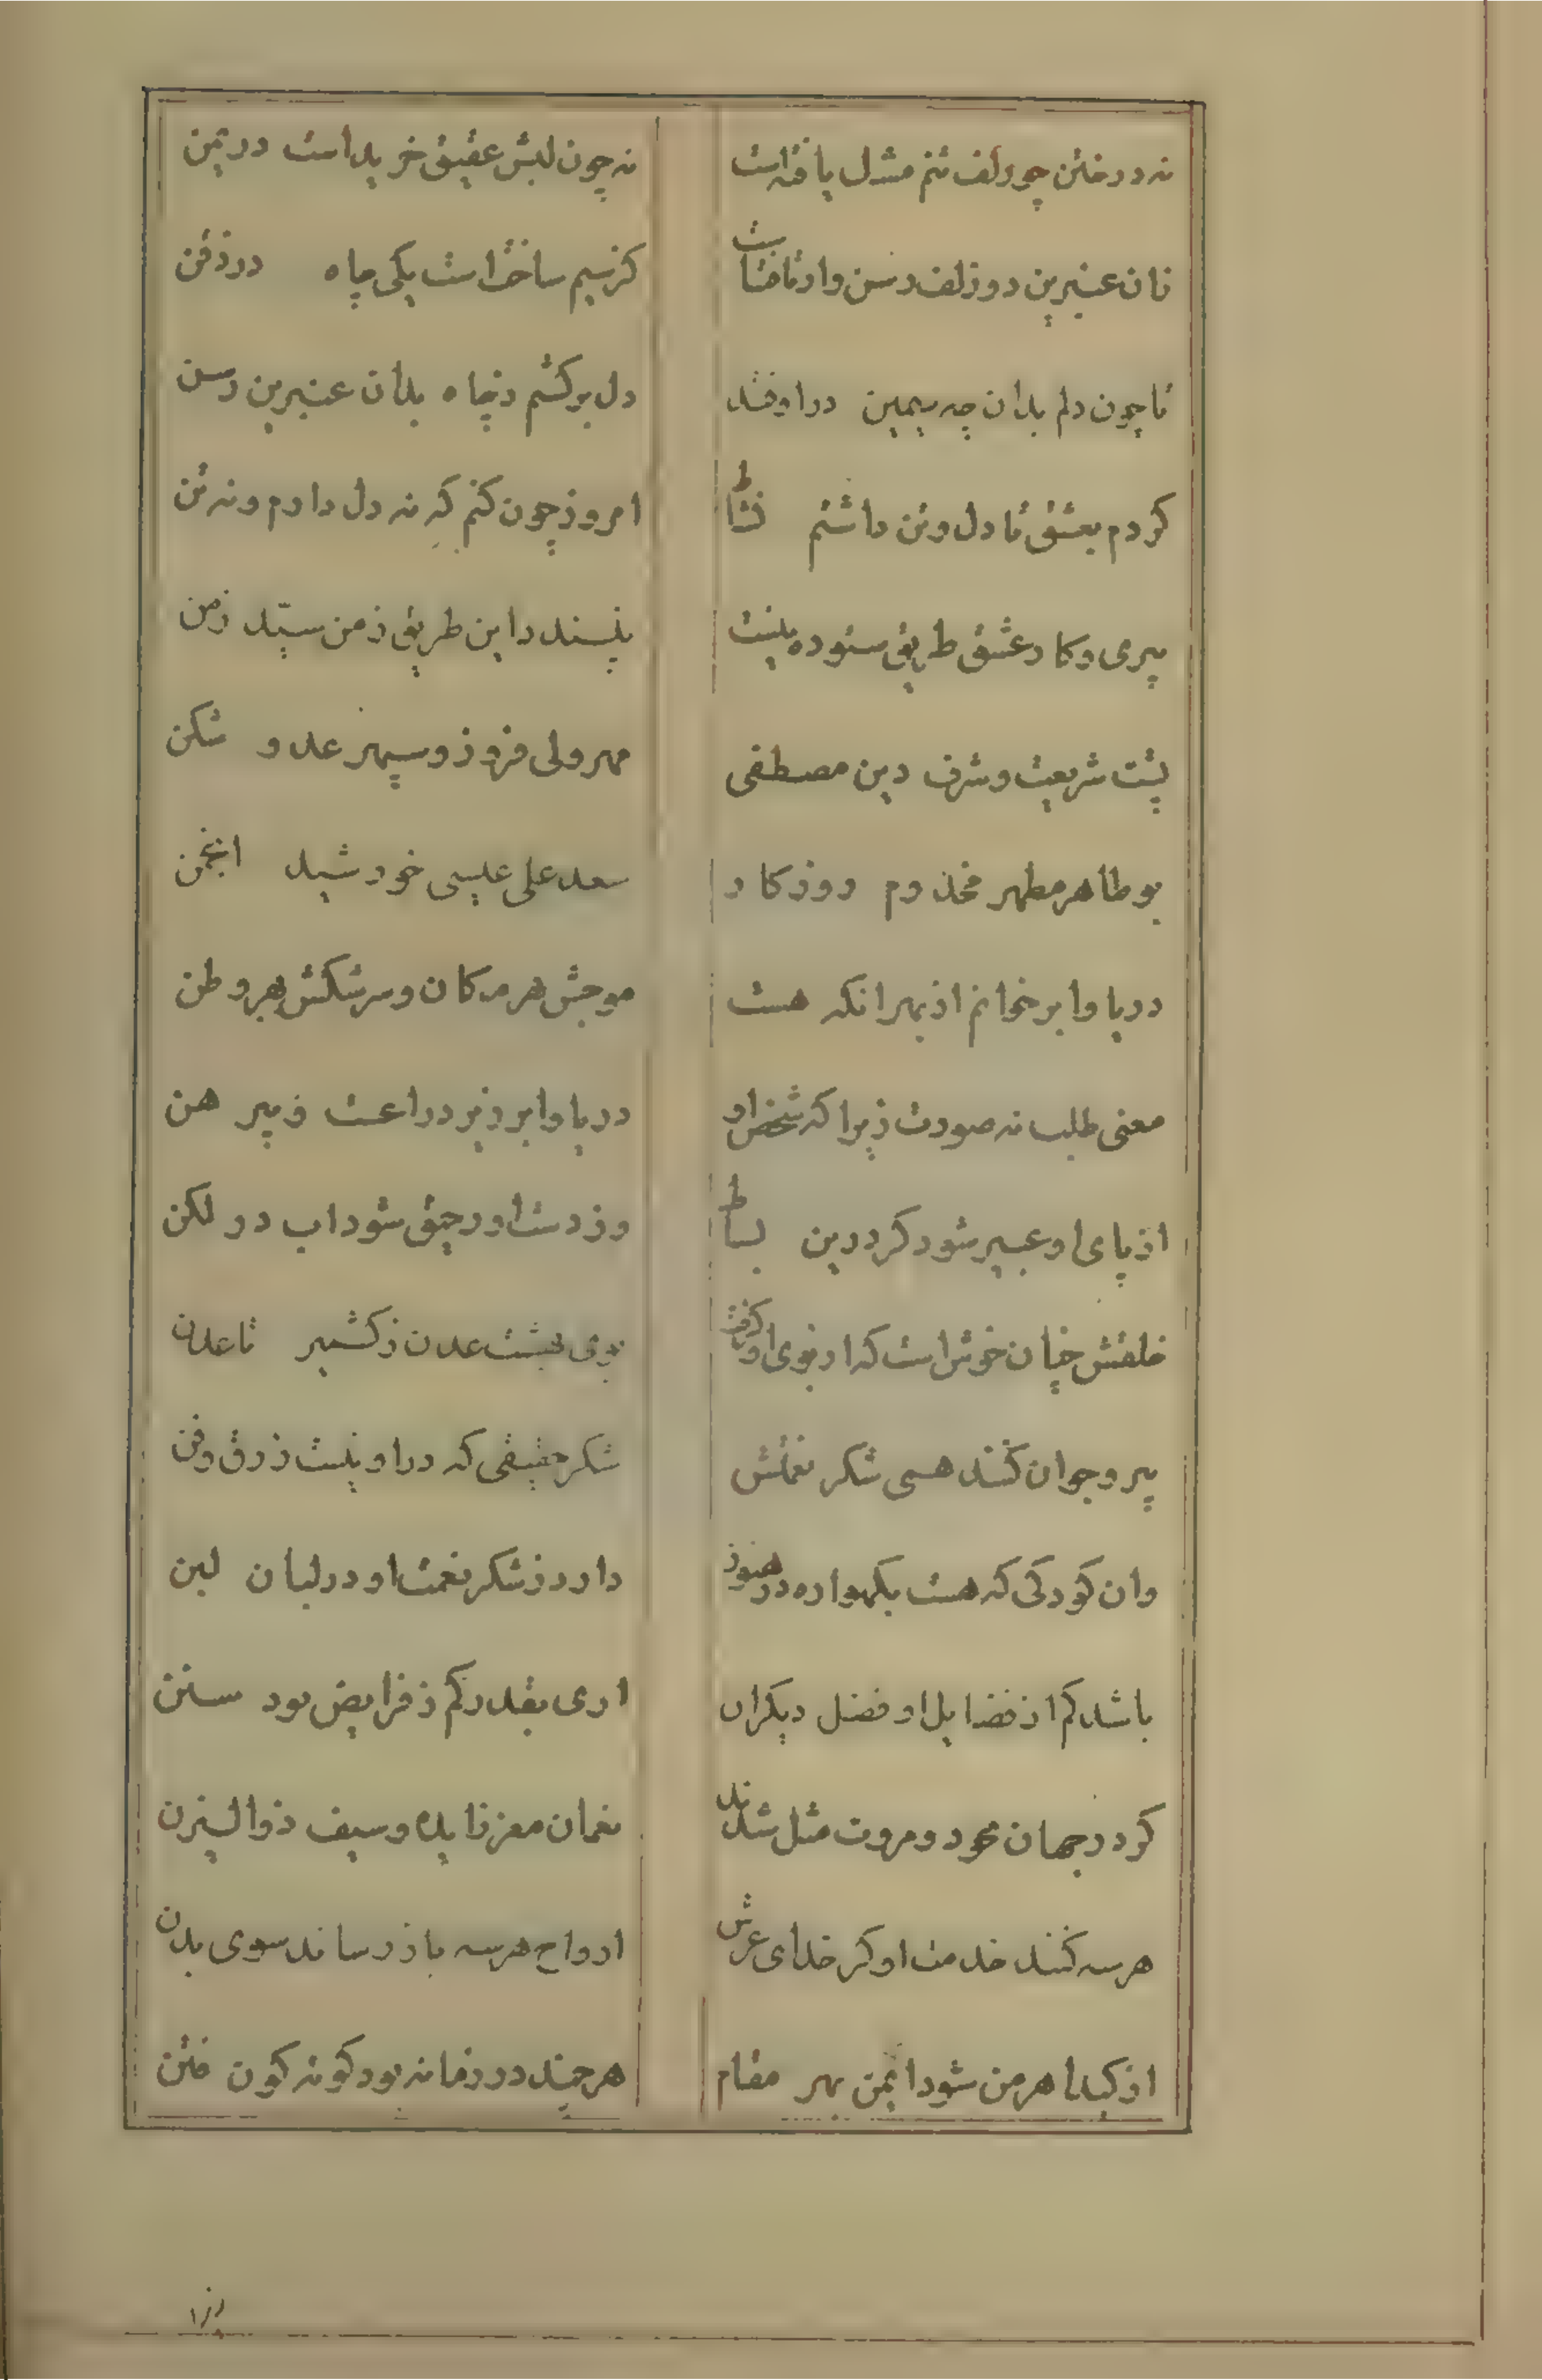 نه در ختن چو زلف تنم مشک یافته است
نه چون لبش عقیق خریداست در یمن
زان عنبرین دو زلف رسن وار تافتست
کز سیم ساختست یکی چاه در ذقن
تا چون دلم بدان چه سیمین در اوفتد
دل برکشم ز چاه بدان عنبرین رسن
کردم بعشق تا دل و تن داشتم نشاط
امروز چون کنم که نه دل دارم و نه تن
پیری و کار عشق طریق ستوده نیست
نپسندد این طریق ز من سید زمن
پشت شریعت و شرف دین مصطفی
مهر ولی فروز و سپهر عدو شکن
بوطاهر مطهر مخدوم روزکار
سعد علی عیسی خورشید انجمن
دریا و ابر خوانم از بهر انکه هست
موجش هر مکان و سرشکش بهر وطن
معنی طلب نه صورت زیرا که شخص او
دریا و ابر زیر دراعت ز پیرهن
از پای او عبیر شود کرد درین بساط
وز دست او رحیق شود اب در لکن
خلقش چنان خوش است که از بوی او کرفت
بوی بهشت عدن ز کشمیر تا عدن
پیر و جوان کنند همی شکر نعمتش
شکر حقیقی که در او نیست زرق و فن
وان کودکی که هست بکهواره در هنوز
دارد ز شکر نعمت او در لبان لبن
باشد کم از فضایل او فضل دیکران
اری بقدر کم ز فرایض بود سنن
کر در جهان بجود و مروت مثل شدند
نعمان معن زایده و سیف ذوالیزن
هر سه کنند خدمت او کر خدای عرش
ارواح هر سه باز رساند سوی بدن
از کید اهرمن شود ایمن بهر مقام
هرچند در زمانه بود کونه کون فتن